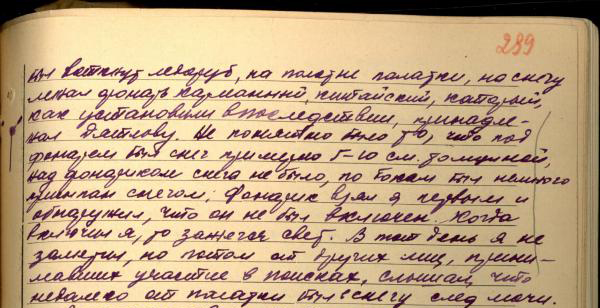 289
был воткнут ледоруб, на полотне палатки, на снегу
лежал фонарь карманный, китайский, который,
как установили впоследствии, принадле-
жал Дятлову. Не понятно было то, что под
фонарем был снег примерно 5-10 см. толщиной,
над фонариком снега не было, по бокам был немного
припан снегом. Фонарик взял я первым и
обнаружил, что он не был включен. Когда
включил я, то зажегся свет. В тот день я не
заметил, но потом от других лиц, прини-
мавших участие в поисках, слышал, что
недалеко от палатки был в снегу след мочи.